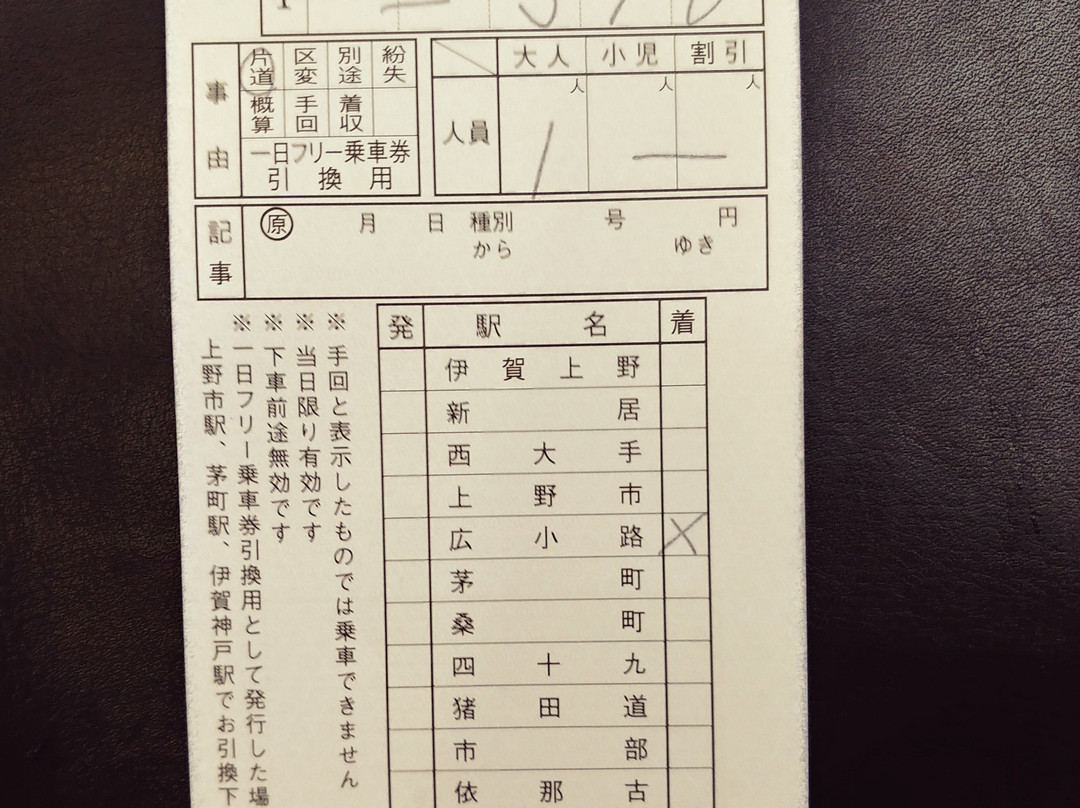 事由
片道 区変 別途 紛失
概算 手回 着収
一日フリー乗車券
引換用
大人 小児 割引
人 人 人
人員 1 —
記事
原 月 日 種別 号 円
から ゆき
発 駅名 着
伊賀上野
新居
西大手
上野市
広小路 ×
茅町
桑町
四十九
猪田道
市部
依那古
※手回と表示したものでは乗車できません
※当日限り有効です
※下車前途無効です
※一日フリー乗車券引換用として発行した場
上野市駅、茅町駅、伊賀神戸駅でお引換下